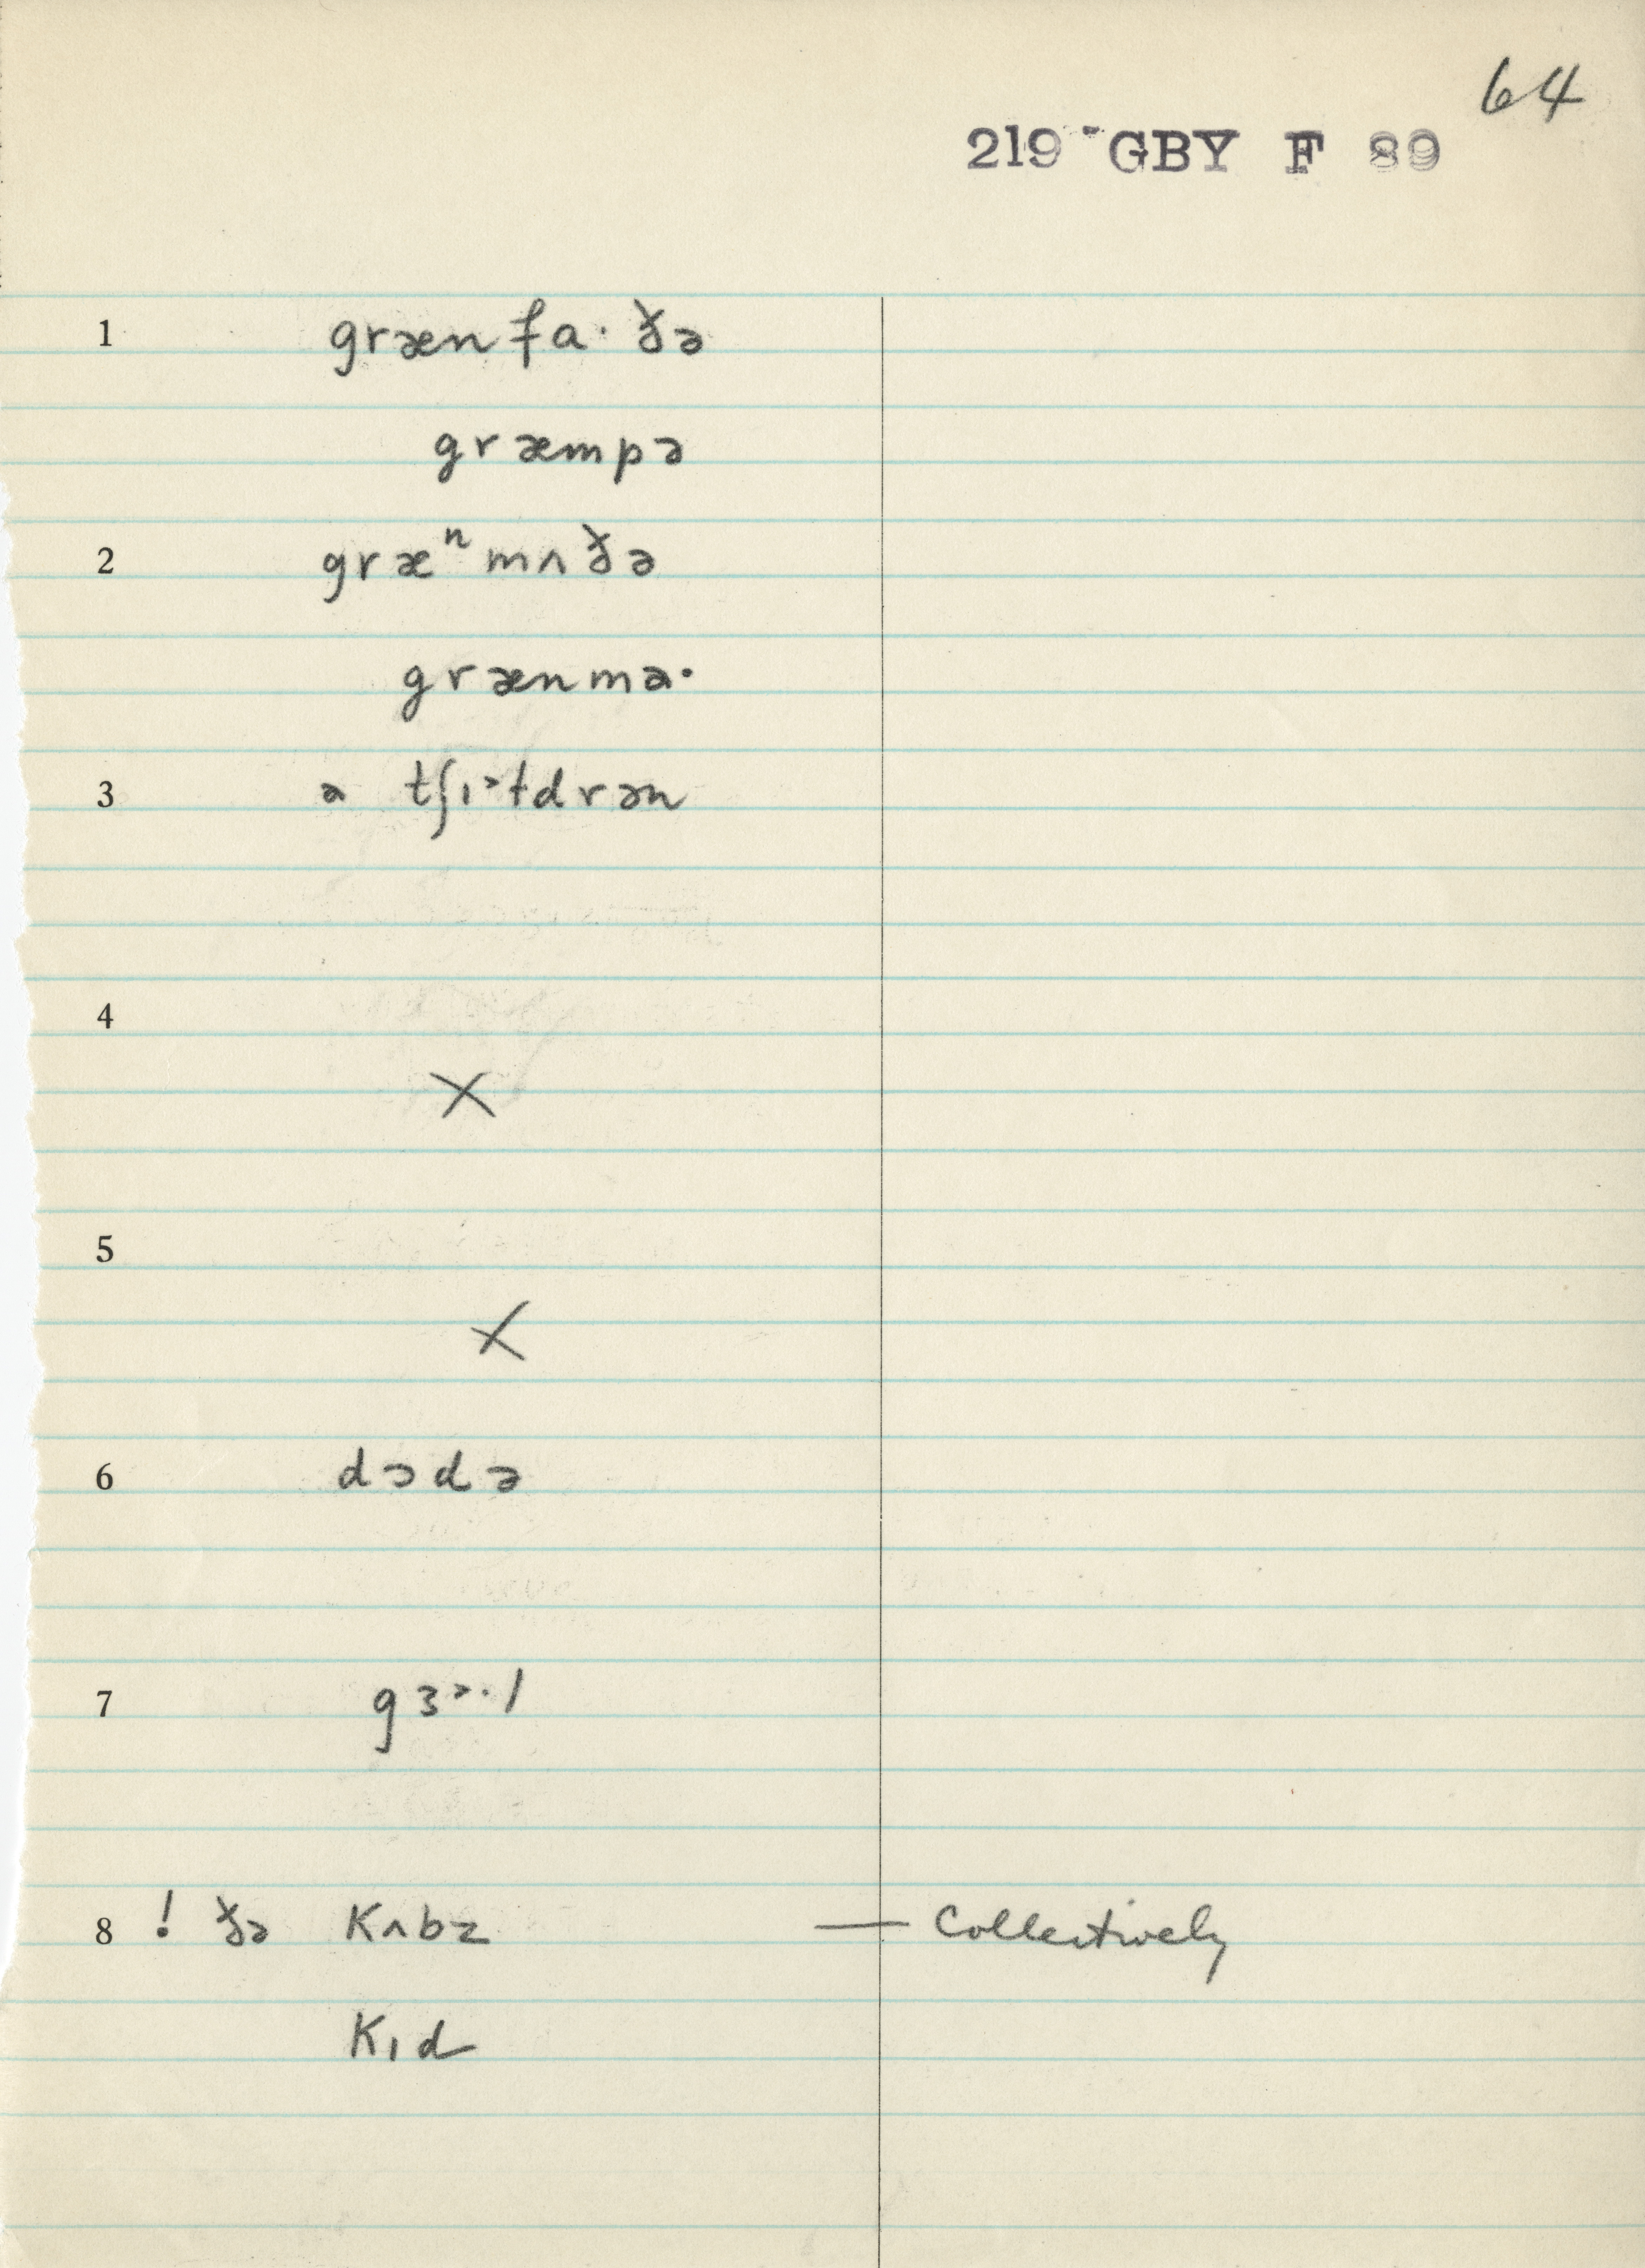 64
219 GBY F 89
1 græn fa· ðə
græmpə
2 græⁿ mʌ ðə
grænma·
3 ə tʃɪɫdrən
4
X
5
X
6 dɔdə
7 gɜ˞·l
8 ! ðə Kʌbz — Collectively
Kɪd